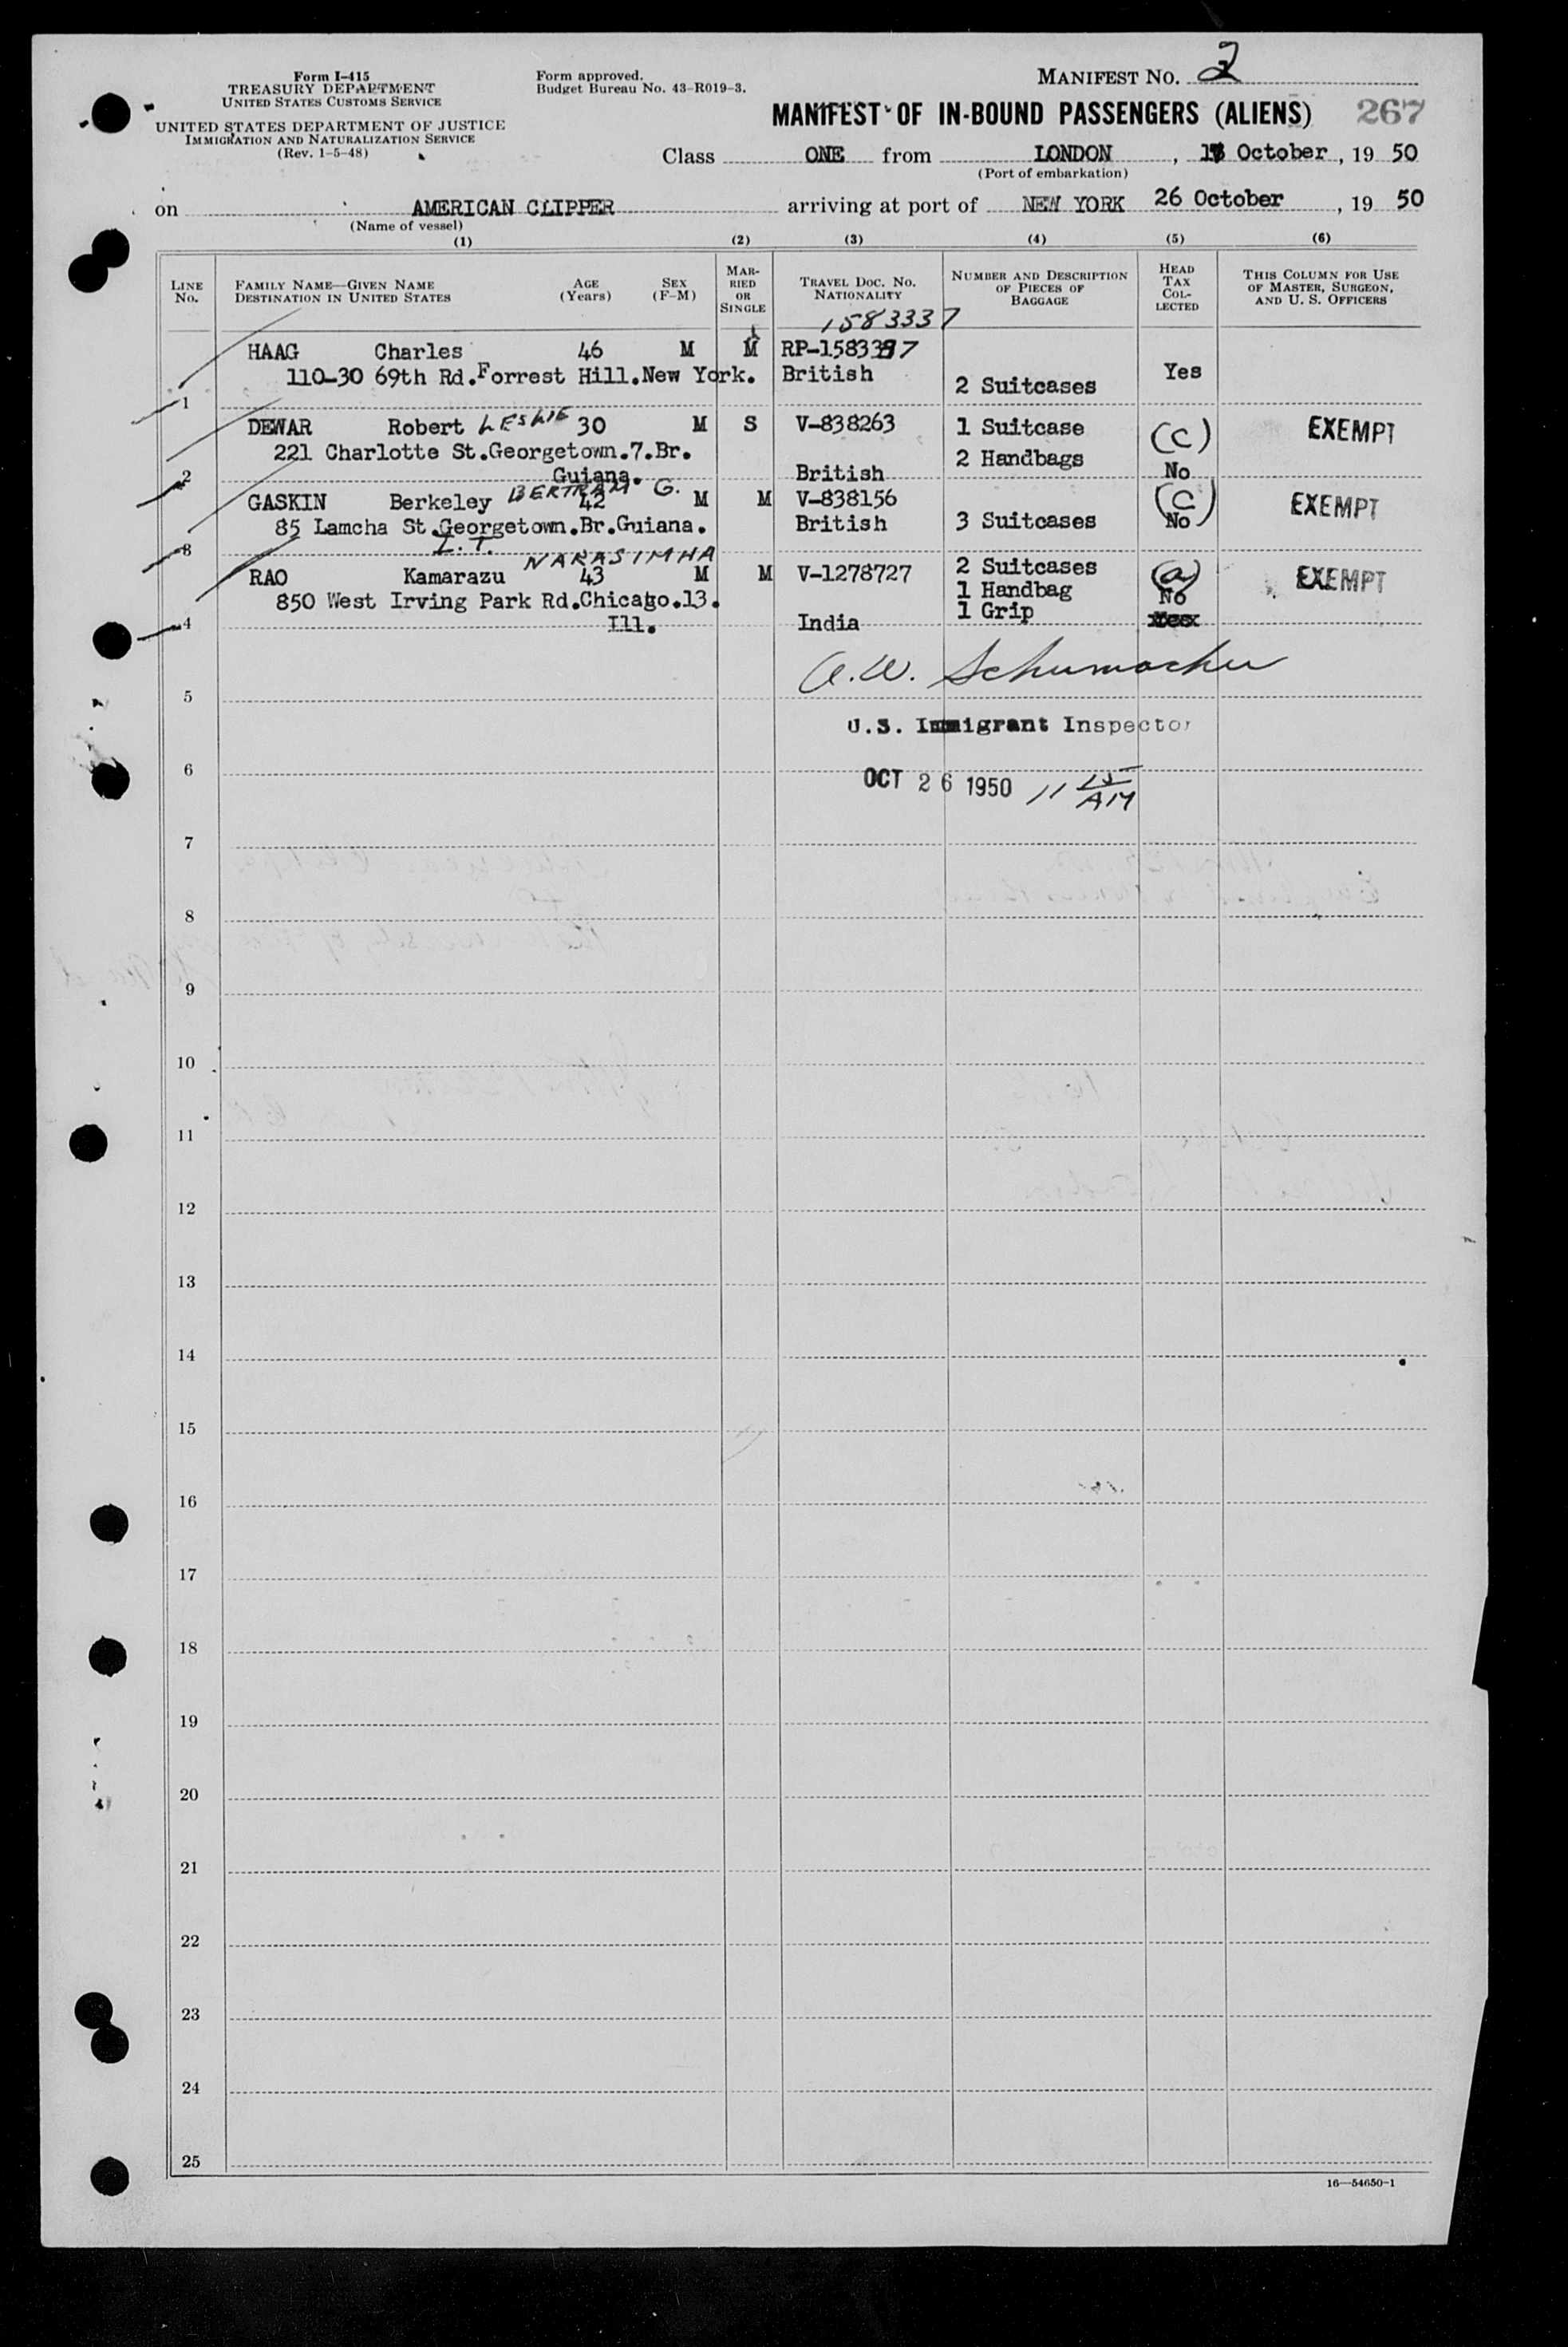 Form I-415
TREASURY DEPARTMENT
UNITED STATES CUSTOMS SERVICE
UNITED STATES DEPARTMENT OF JUSTICE
IMMIGRATION AND NATURALIZATION SERVICE
(Rev. 1-5-48)
Form approved.
Budget Bureau No. 43-R019-3.
MANIFEST NO. 2
MANIFEST OF IN-BOUND PASSENGERS (ALIENS) 267
Class ONE from LONDON, October, 19 50
(Port of embarkation)
on AMERICAN CLIPPER arriving at port of NEW YORK 26 October, 19 50
(Name of vessel)
(1) (2) (3) (4) (5) (6)
LINE No.
FAMILY NAME—GIVEN NAME
DESTINATION IN UNITED STATES
AGE (Years)
SEX (F-M)
MARRIED OR SINGLE
TRAVEL DOC. NO.
NATIONALITY
NUMBER AND DESCRIPTION OF PIECES OF BAGGAGE
HEAD TAX COLLECTED
THIS COLUMN FOR USE OF MASTER, SURGEON, AND U. S. OFFICERS
1583337
HAAG Charles 46 M M RP-1583337
110-30 69th Rd.Forrest Hill.New York. British 2 Suitcases Yes
1
DEWAR Robert LESLIE 30 M S V-838263 1 Suitcase (C) EXEMPT
221 Charlotte St.Georgetown.7.Br. 2 Handbags
2 Guiana. British No
GASKIN Berkeley BERTRAM G. 42 M M V-838156 (C) EXEMPT
85 Lamcha St.Georgetown.Br.Guiana. British 3 Suitcases No
3 I.T. NARASIMHA
RAO Kamarazu 43 M M V-1278727 2 Suitcases (a) EXEMPT
850 West Irving Park Rd.Chicago.13. 1 Handbag No
4 Ill. India 1 Grip Yes
A.W. Schumacher
5
U.S. Immigrant Inspector
6
OCT 26 1950 11 15 AM
7
8
9
10
11
12
13
14
15
16
17
18
19
20
21
22
23
24
25
16—54650-1